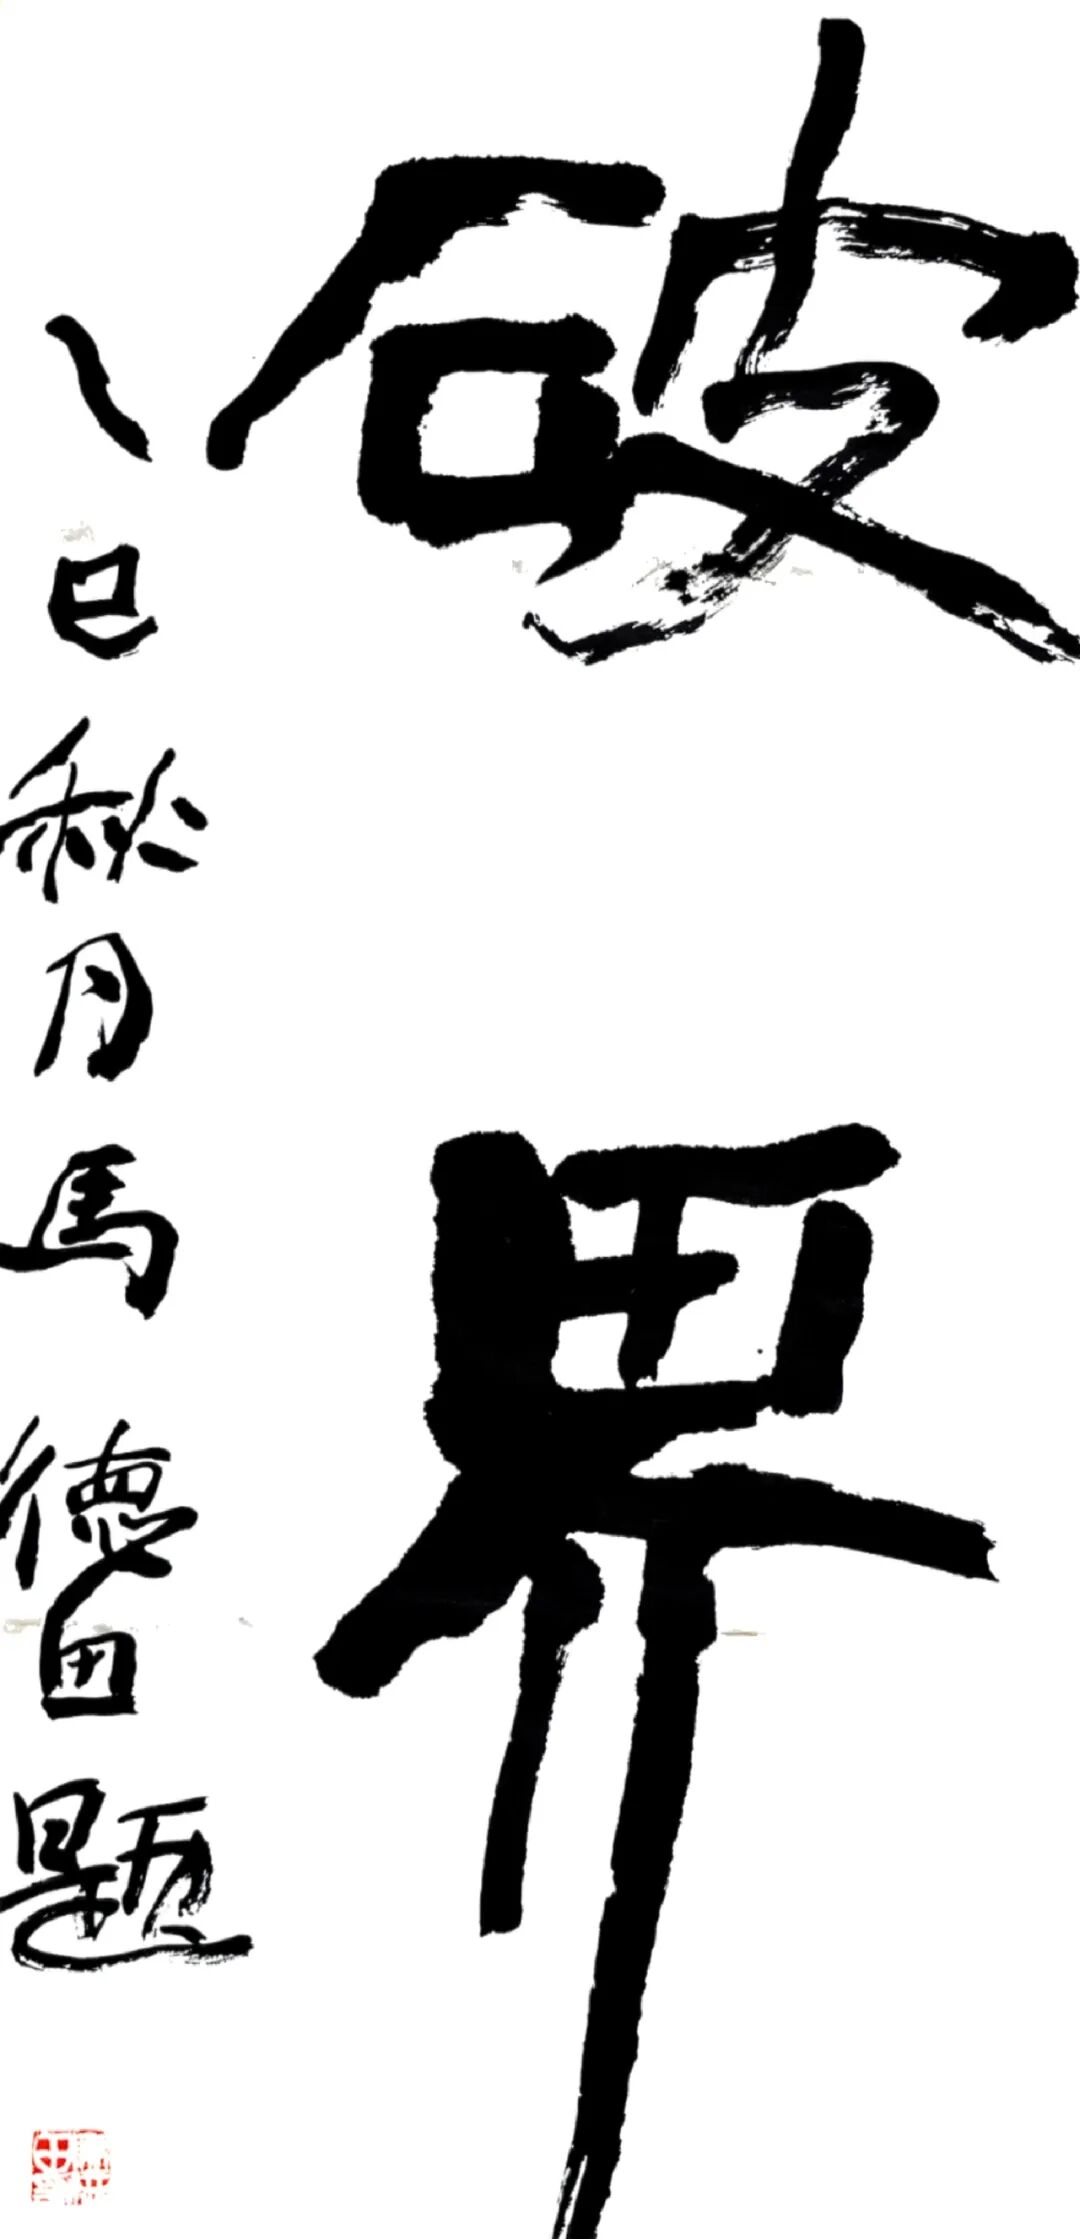 破界
乙巳秋月馬德田題